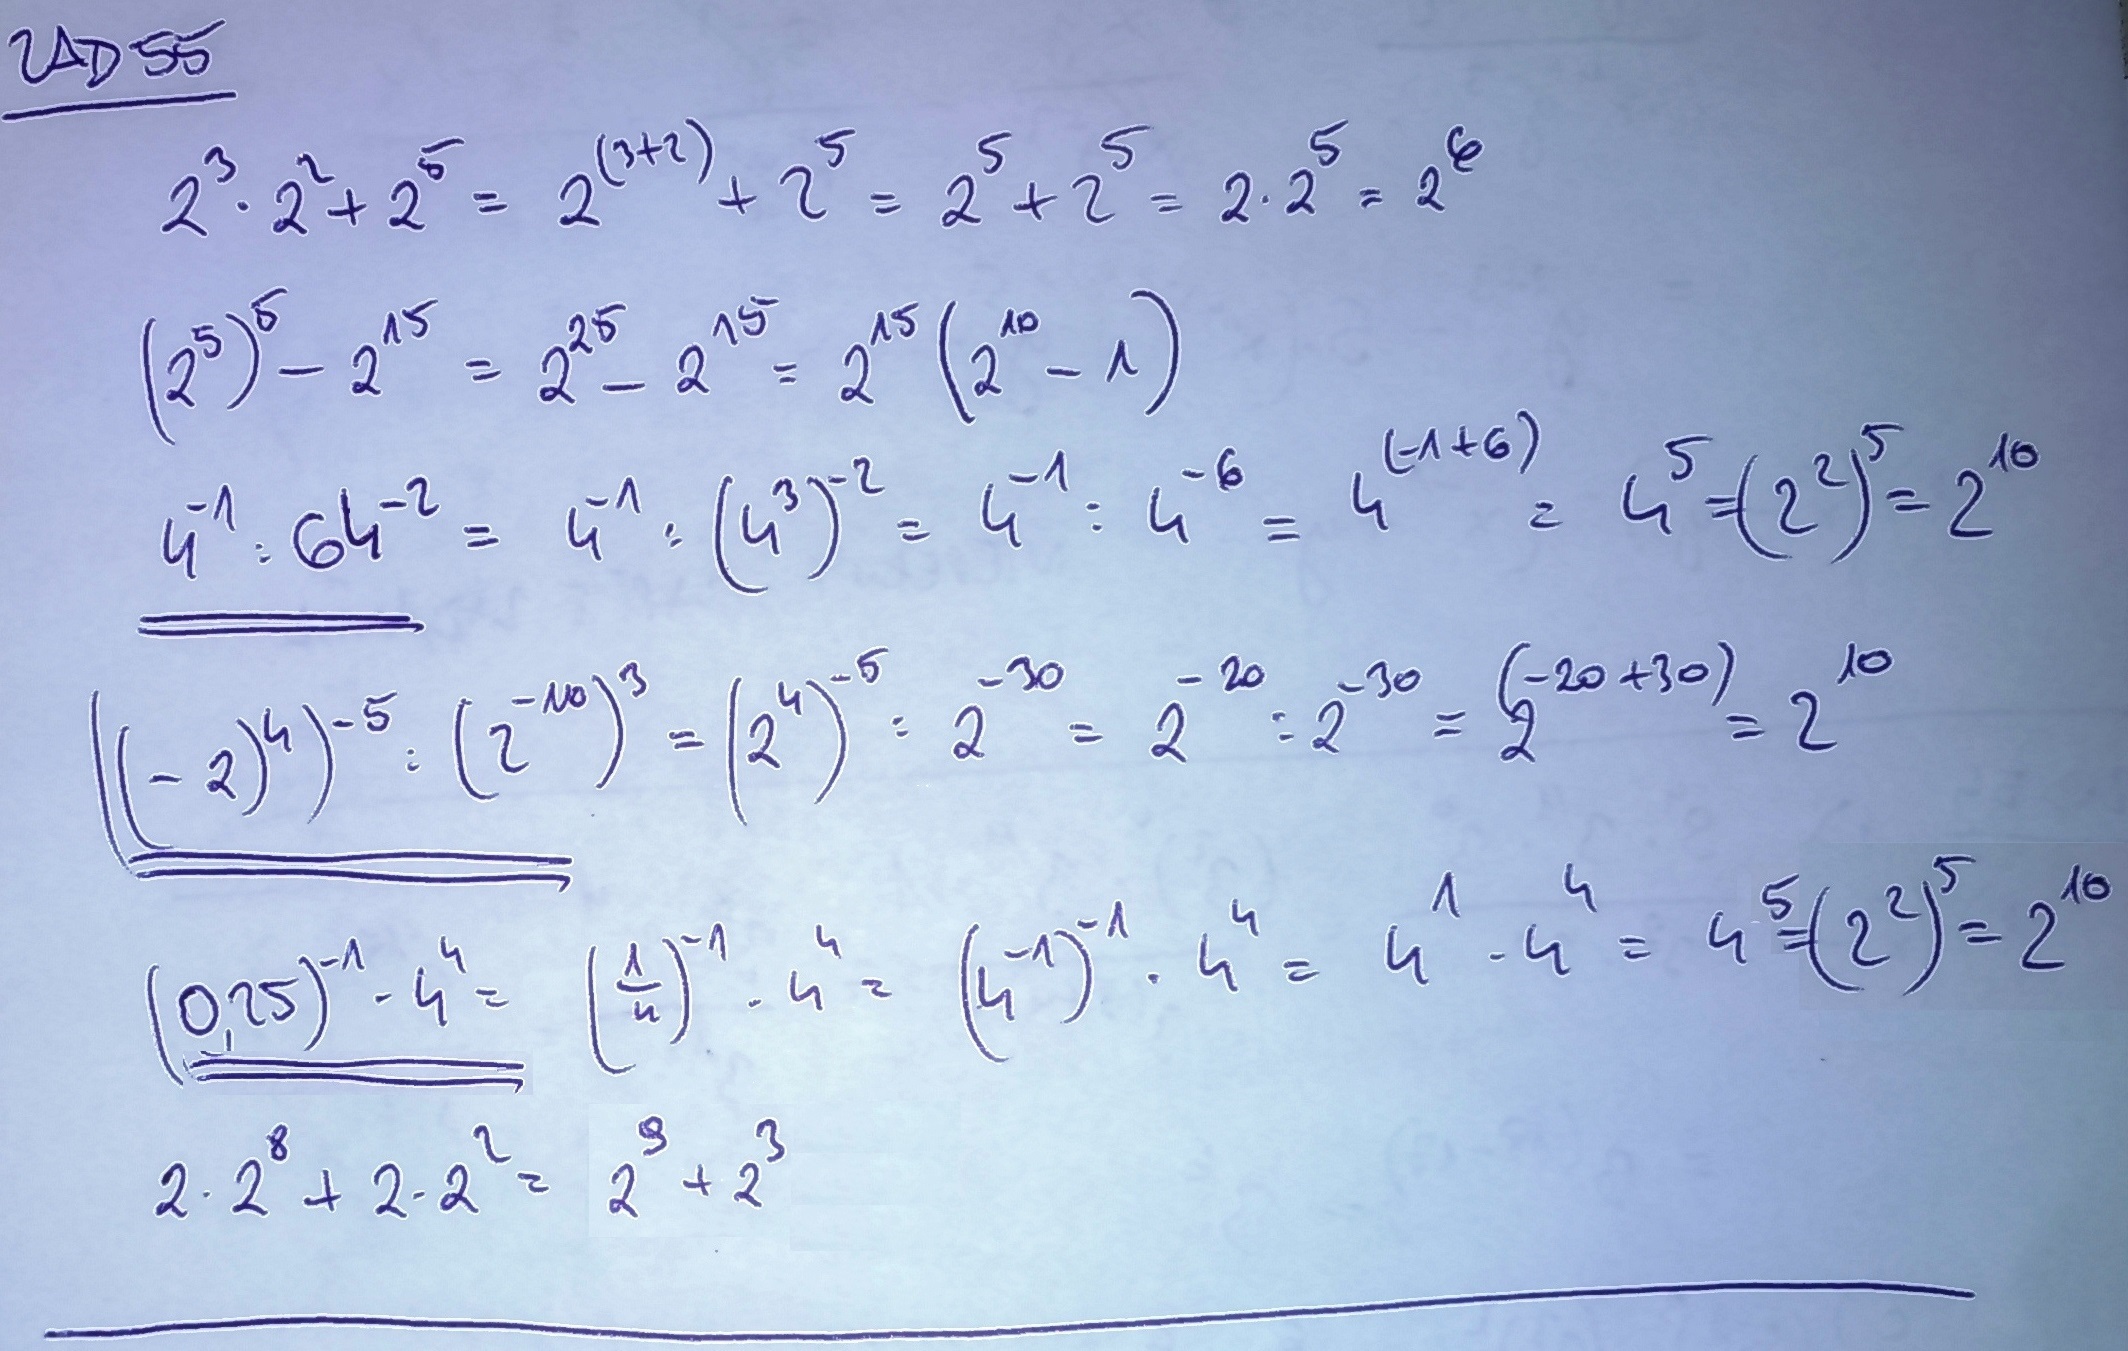 ZAD 55
2³ · 2² + 2⁵ = 2⁽³⁺²⁾ + 2⁵ = 2⁵ + 2⁵ = 2 · 2⁵ = 2⁶
(2⁵)⁵ − 2¹⁵ = 2²⁵ − 2¹⁵ = 2¹⁵ (2¹⁰ − 1)
4⁻¹ : 64⁻² = 4⁻¹ : (4³)⁻² = 4⁻¹ : 4⁻⁶ = 4⁽⁻¹⁺⁶⁾ = 4⁵ = (2²)⁵ = 2¹⁰
((−2)⁴)⁻⁵ : (2⁻¹⁰)³ = (2⁴)⁻⁵ : 2⁻³⁰ = 2⁻²⁰ : 2⁻³⁰ = 2⁽⁻²⁰⁺³⁰⁾ = 2¹⁰
(0,25)⁻¹ · 4⁴ = (1/4)⁻¹ · 4⁴ = (4⁻¹)⁻¹ · 4⁴ = 4¹ · 4⁴ = 4⁵ = (2²)⁵ = 2¹⁰
2 · 2⁸ + 2 · 2² = 2⁹ + 2³